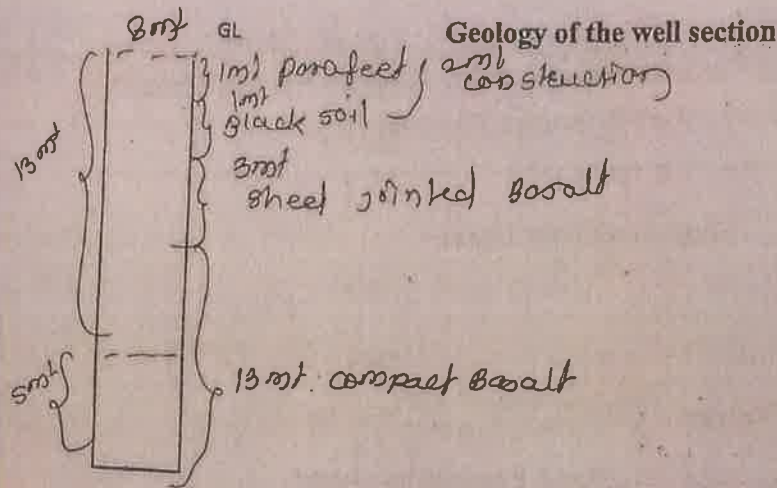 8mt GL Geology of the well section
1mt parafeet 2mt
construction
1mt
Black soil
13mt
3mt
Sheet jointed Basalt
13 mt. compact Basalt
5mt